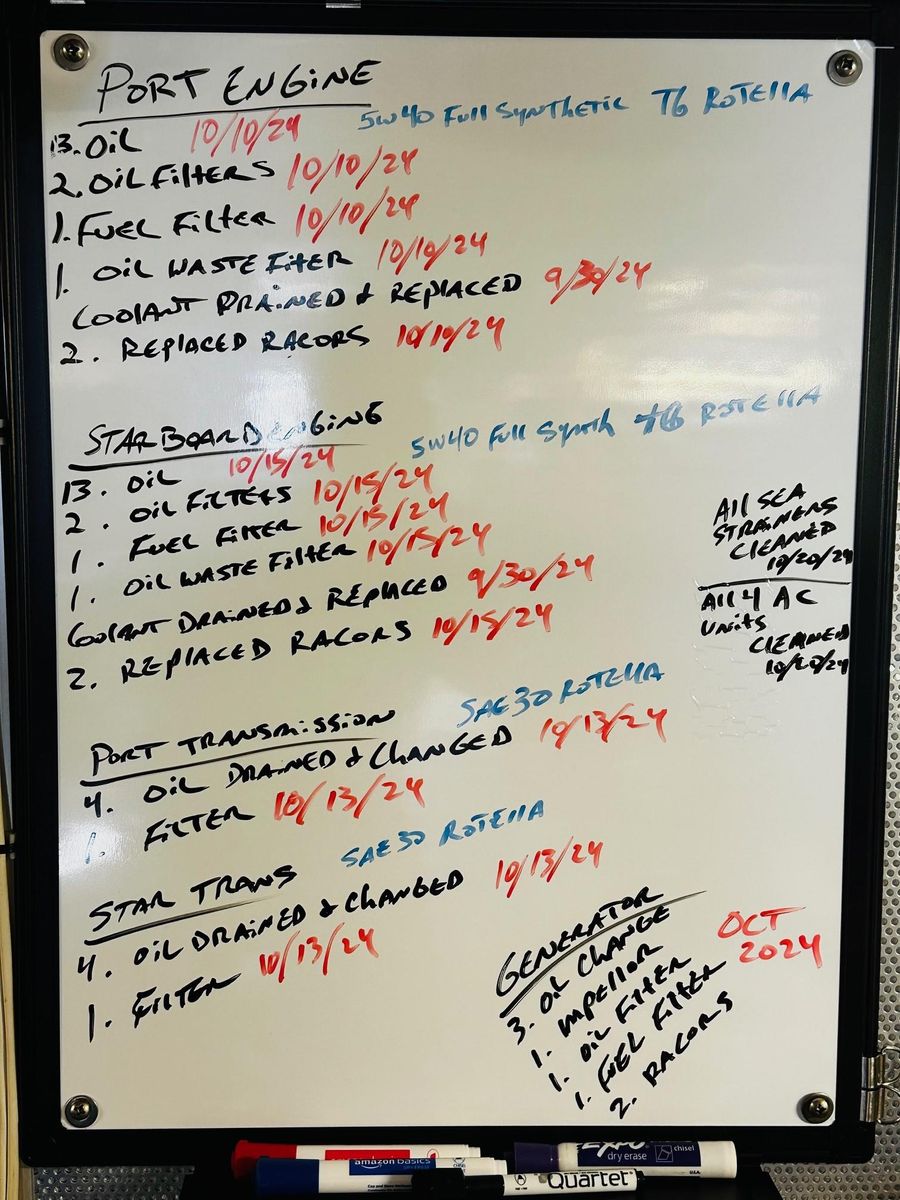 PORT ENGINE
5W40 Full Synthetic T6 ROTELLA
13. OIL 10/10/24
2. OIL FILTERS 10/10/24
1. FUEL FILTER 10/10/24
1. OIL WASTE FILTER 10/10/24
COOLANT DRAINED & REPLACED 9/30/24
2. REPLACED RACORS 10/10/24
STARBOARD ENGINE
5W40 Full Synth T6 ROTELLA
13. OIL 10/15/24
2. OIL FILTERS 10/15/24
1. FUEL FILTER 10/15/24
1. OIL WASTE FILTER 10/15/24
COOLANT DRAINED & REPLACED 9/30/24
2. REPLACED RACORS 10/15/24
All SEA
STRAINERS
CLEANED
10/20/24
All 4 AC
Units
CLEANED
10/20/24
PORT TRANSMISSION SAE 30 ROTELLA
4. OIL DRAINED & CHANGED 10/13/24
1. FILTER 10/13/24
STAR TRANS SAE 30 ROTELLA
4. OIL DRAINED & CHANGED 10/13/24
1. FILTER 10/13/24
GENERATOR
OCT
2024
3. OIL CHANGE
1. IMPELLOR
1. OIL FILTER
1. FUEL FILTER
2. RACORS
amazon basics
EXPO
dry erase
chisel
Quartet